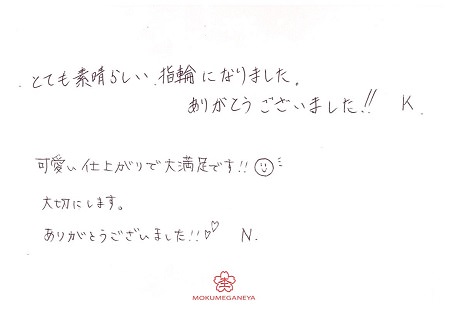 とても素晴らしい指輪になりました。
ありがとうございました!! K.
可愛い仕上がりで大満足です!!
大切にします。
ありがとうございました!! N.
杢
MOKUMEGANEYA